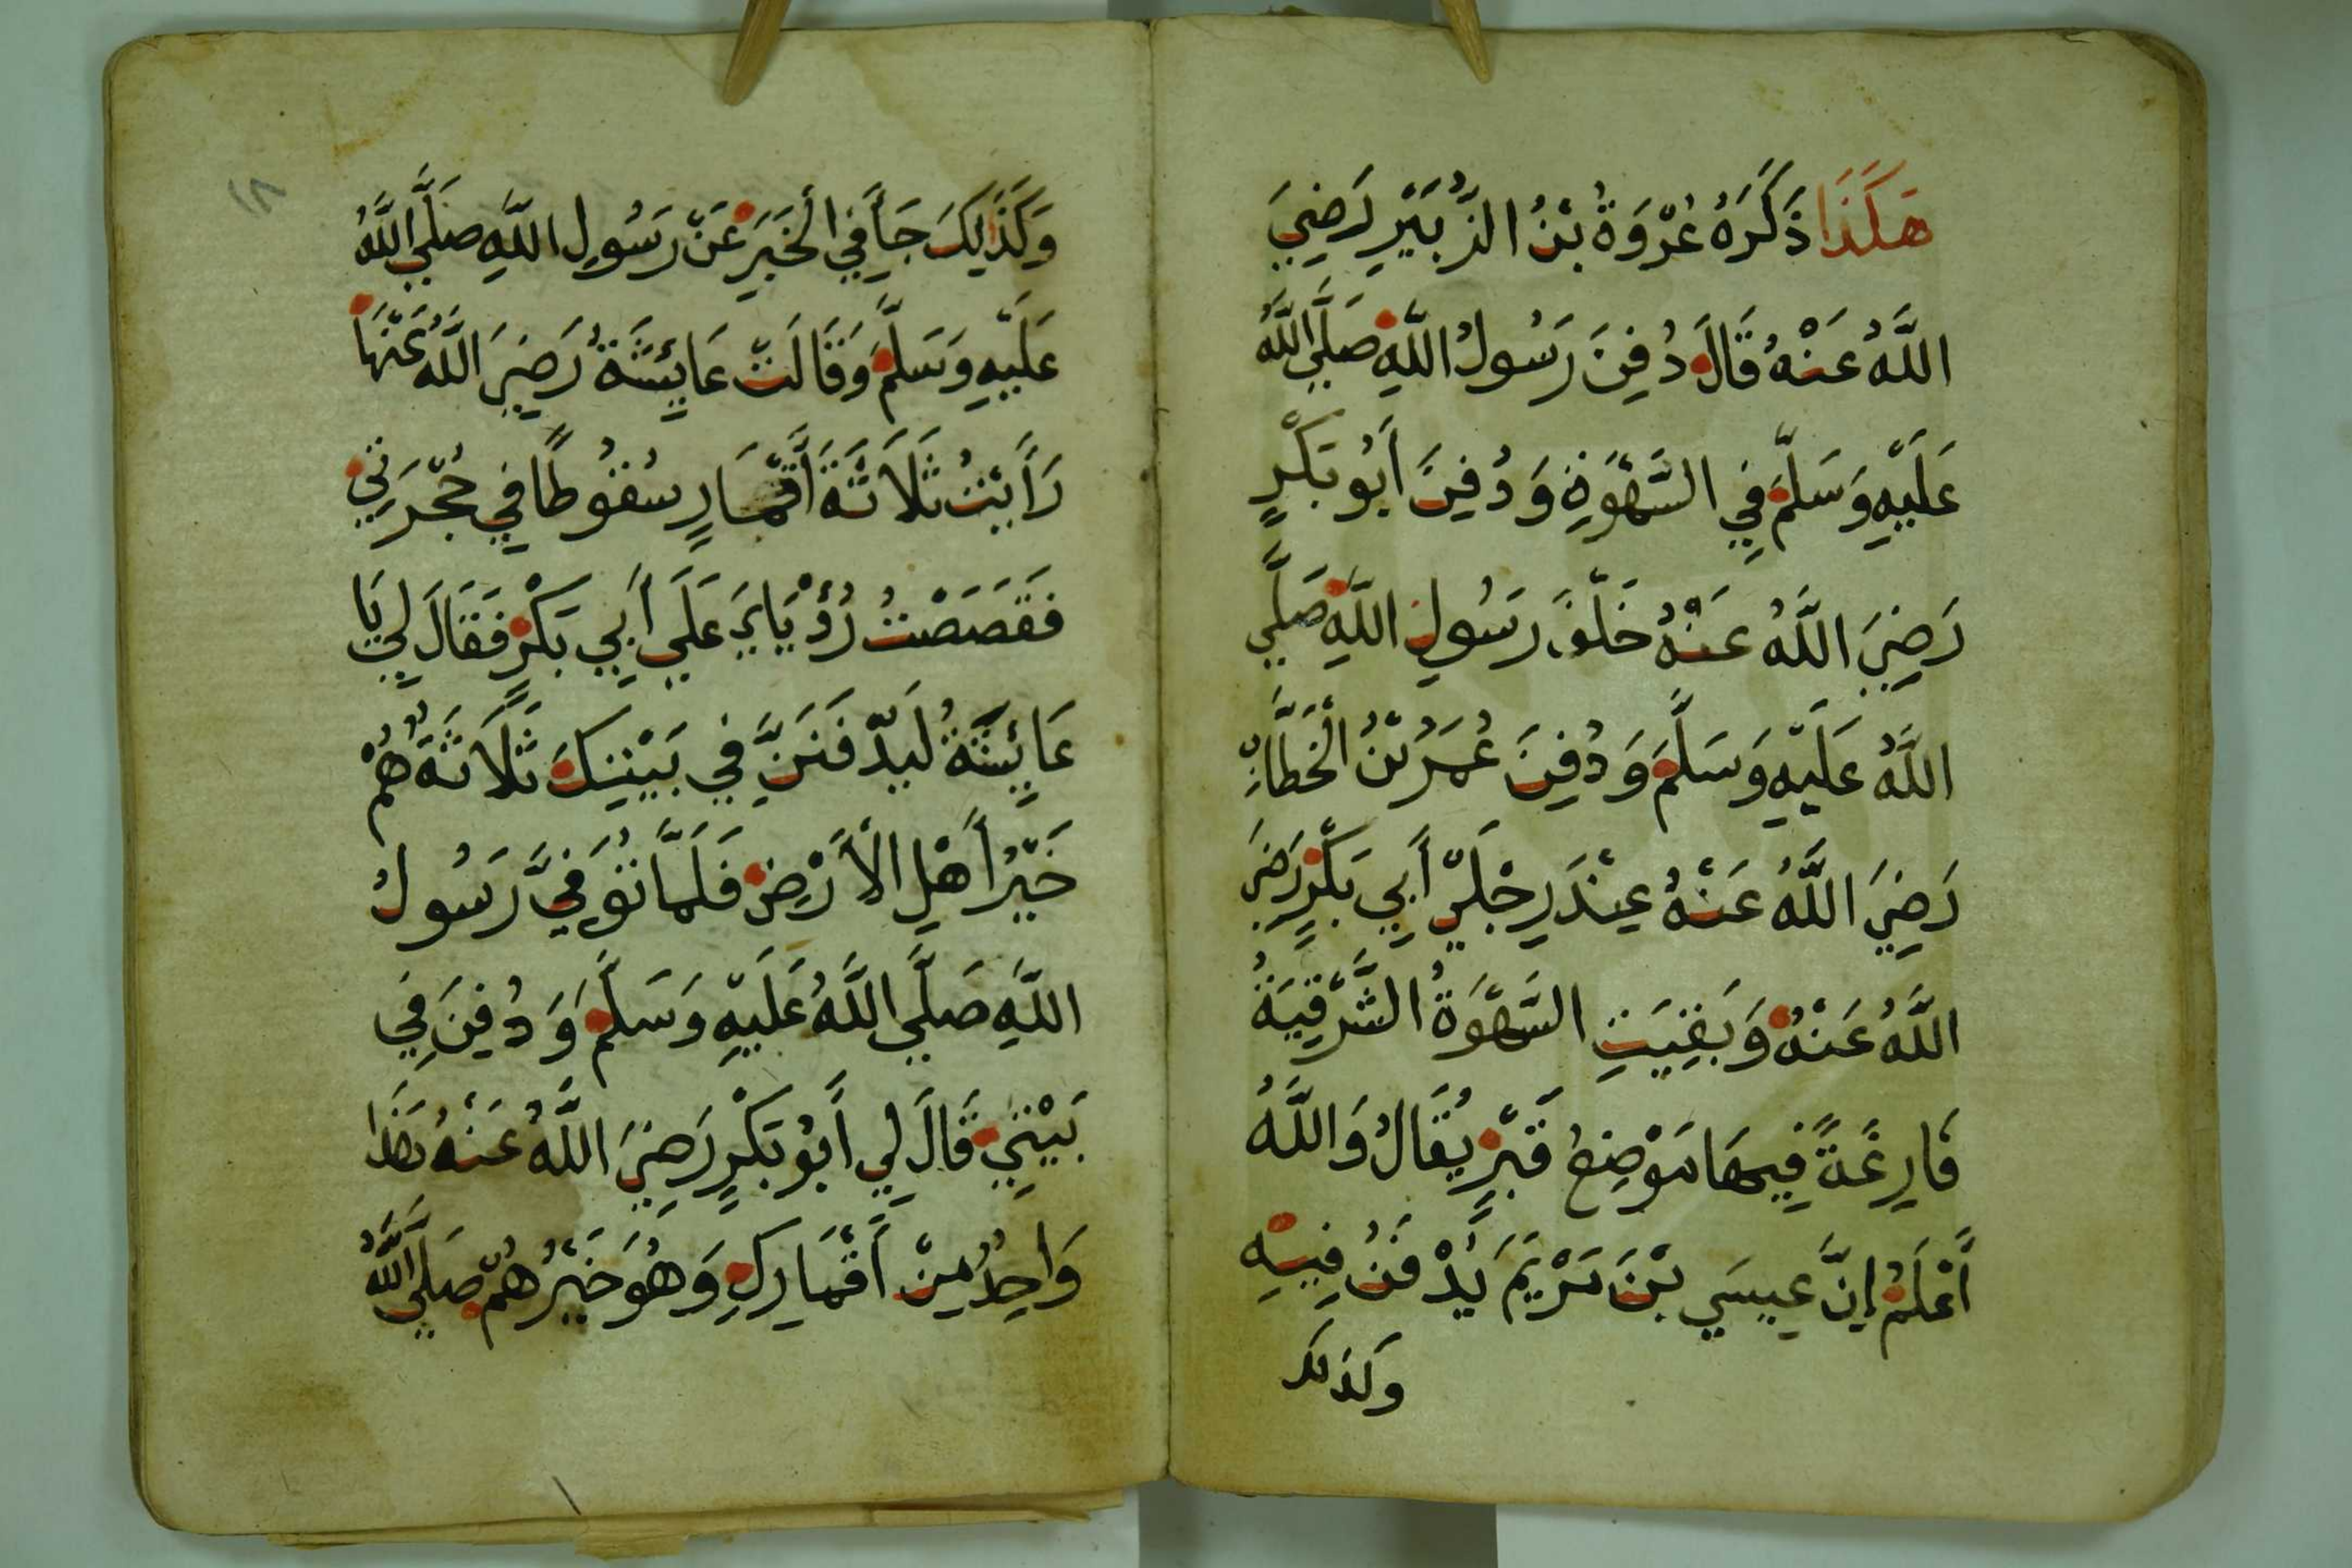 هَكَذَا ذَكَرَهُ عُرْوَةُ بْنُ الزُّبَيْرِ رَضِيَ
اللَّهُ عَنْهُ قَالَ دُفِنَ رَسُولُ اللَّهِ صَلَّي اللَّهُ
عَلَيْهِ وَسَلَّمَ فِي السَّهْوَةِ وَدُفِنَ أَبُو بَكْرٍ
رَضِيَ اللَّهُ عَنْهُ خَلْفَ رَسُولِ اللَّهِ صَلَّي
اللَّهُ عَلَيْهِ وَسَلَّمَ وَدُفِنَ عُمَرُ بْنُ الْخَطَّابِ
رَضِيَ اللَّهُ عَنْهُ عِنْدَ رِجْلَيْ أَبِي بَكْرٍ رَضِيَ
اللَّهُ عَنْهُ وَبَقِيَتِ السَّهْوَةُ الشَّرْقِيَةُ
فَارِغَةً فِيهَا مَوْضِعُ قَبْرٍ يُقَالُ وَاللَّهُ
أَعْلَمُ إِنَّ عِيسَي بْنَ مَرْيَمَ يُدْفَنُ فِيهِ
وكذلك
وَكَذَالِكَ جَأَ فِي الْخَبَرِ عَنْ رَسُولِ اللَّهِ صَلَّي اللَّهُ
عَلَيْهِ وَسَلَّمَ وَقَالَتْ عَايِشَةُ رَضِيَ اللَّهُ عَنْهَا
رَأَيْتُ ثَلَاثَةَ أَقْمَارٍ سُقُوطًا فِي حُجْرَتِي
فَقَصَصْتُ رُؤْيَايَ عَلَي أَبِي بَكْرٍ فَقَالَ لِي يَا
عَايِشَةُ لَيُدْفَنَنَّ فِي بَيْتِكَ ثَلَاثَةٌ هُمْ
خَيْرُ أَهْلِ الْأَرْضِ فَلَمَّا تُوُفِّيَ رَسُولُ
اللَّهِ صَلَّي اللَّهُ عَلَيْهِ وَسَلَّمَ وَدُفِنَ فِي
بَيْتِي قَالَ لِي أَبُو بَكْرٍ رَضِيَ اللَّهُ عَنْهُ هَذَا
وَاحِدٌ مِنْ أَقْمَارِكِ وَهُوَ خَيْرُهُمْ صَلَّي اللَّهُ
١٨